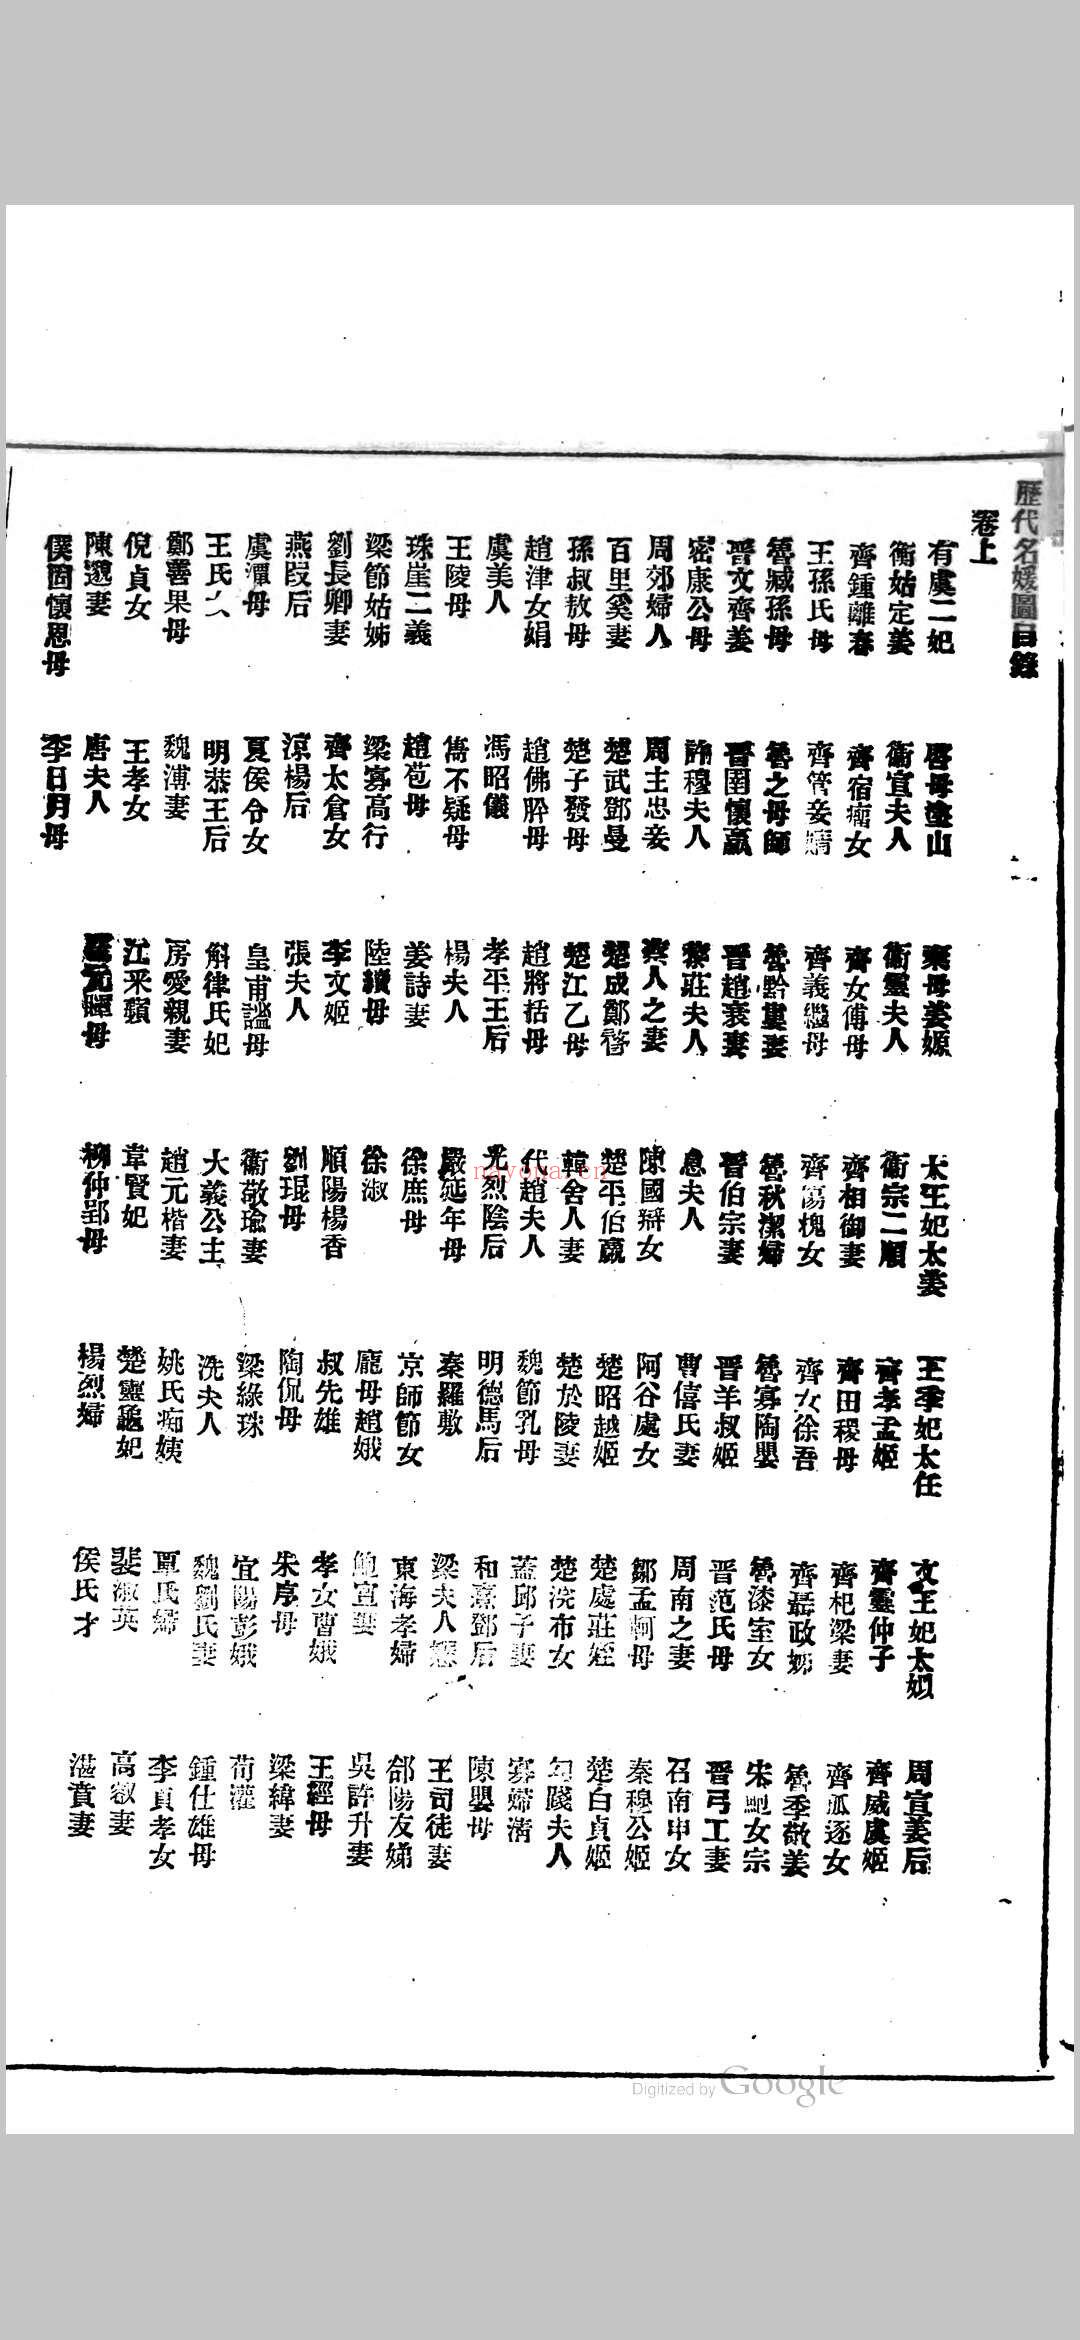 歷代名媛圖 目錄
卷上
有虞二妃 啓母塗山 棄母姜嫄 太王妃太姜 王季妃太任 文王妃太姒 周宣姜后
衛姑定姜 衛宣夫人 衛靈夫人 衛宗二順 齊孝孟姬 齊靈仲子 齊威虞姬
齊鍾離春 齊宿瘤女 齊女傅母 齊相御妻 齊田稷母 齊杞梁妻 齊孤逐女
王孫氏母 齊管妾婧 齊義繼母 齊傷槐女 齊女徐吾 齊聶政姊 魯季敬姜
魯臧孫母 魯之母師 魯黔婁妻 魯秋潔婦 魯寡陶嬰 魯漆室女 宋鮑女宗
晉文齊姜 晉圉懷嬴 晉趙衰妻 晉伯宗妻 晉羊叔姬 晉范氏母 晉弓工妻
密康公母 許穆夫人 黎莊夫人 息夫人 曹僖氏妻 周南之妻 召南申女
周郊婦人 周主忠妾 蔡人之妻 陳國辯女 阿谷處女 鄒孟軻母 秦穆公姬
百里奚妻 楚武鄧曼 楚成鄭瞀 楚平伯嬴 楚昭越姬 楚處莊姪 楚白貞姬
孫叔敖母 楚子發母 楚江乙母 韓舍人妻 楚於陵妻 楚浣布女 勾踐夫人
趙津女娟 趙佛肸母 趙將括母 代趙夫人 魏節乳母 蓋邱子妻 寡婦清
虞美人 馮昭儀 孝平王后 光烈陰后 明德馬后 和熹鄧后 陳嬰母
王陵母 雋不疑母 楊夫人 嚴延年母 秦羅敷 梁夫人嫕 王司徒妻
珠崖二義 趙苞母 姜詩妻 徐庶母 京師節女 東海孝婦 郃陽友娣
梁節姑姊 梁寡高行 陸續母 徐淑 龐母趙娥 鮑宣妻 吳許升妻
劉長卿妻 齊太倉女 李文姬 順陽楊香 叔先雄 孝女曹娥 王經母
燕叚后 涼楊后 張夫人 劉琨母 陶侃母 朱序母 梁緯妻
虞潭母 夏侯令女 皇甫謐母 衛敬瑜妻 梁綠珠 宜陽彭娥 荀灌
王氏 明恭王后 斛律氏妃 大義公主 洗夫人 魏劉氏妻 鍾仕雄母
鄭善果母 魏溥妻 房愛親妻 趙元楷妻 姚氏痴姨 覃氏婦 李貞孝女
倪貞女 王孝女 江采蘋 韋賢妃 楚靈龜妃 裴淑英 高叡妻
陳邈妻 唐夫人 元暐母 柳仲郢母 楊烈婦 侯氏才 湛賁妻
僕固懷恩母 李日月母
nayona.cn
Digitized by Google